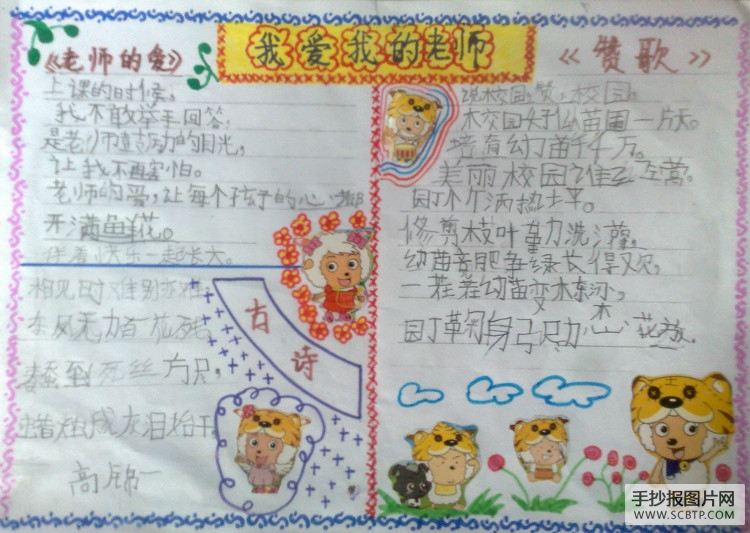 我爱我的老师
《老师的爱》
上课的时候，
我不敢举手回答，
是老师鼓励的目光，
让我不再害怕。
老师的爱，让每个孩子的心都
开满鲜花。
伴着快乐一起长大。
相见时难别亦难
东风无力百花残
春蚕到死丝方尽，
蜡炬成灰泪始干
高锦一
古诗
《赞歌》
说校园，赞校园。
木校园好似苗圃一片天。
培育幼苗千千万。
美丽校园谁
园丁个个洒热土平。
修剪枝叶勤洗灌，
幼苗音肥争绿长得欢，
一茬茬幼苗变木东河，
园丁革匊身弓尽力心花放。
手抄报图片网
WWW.SCBTP.COM